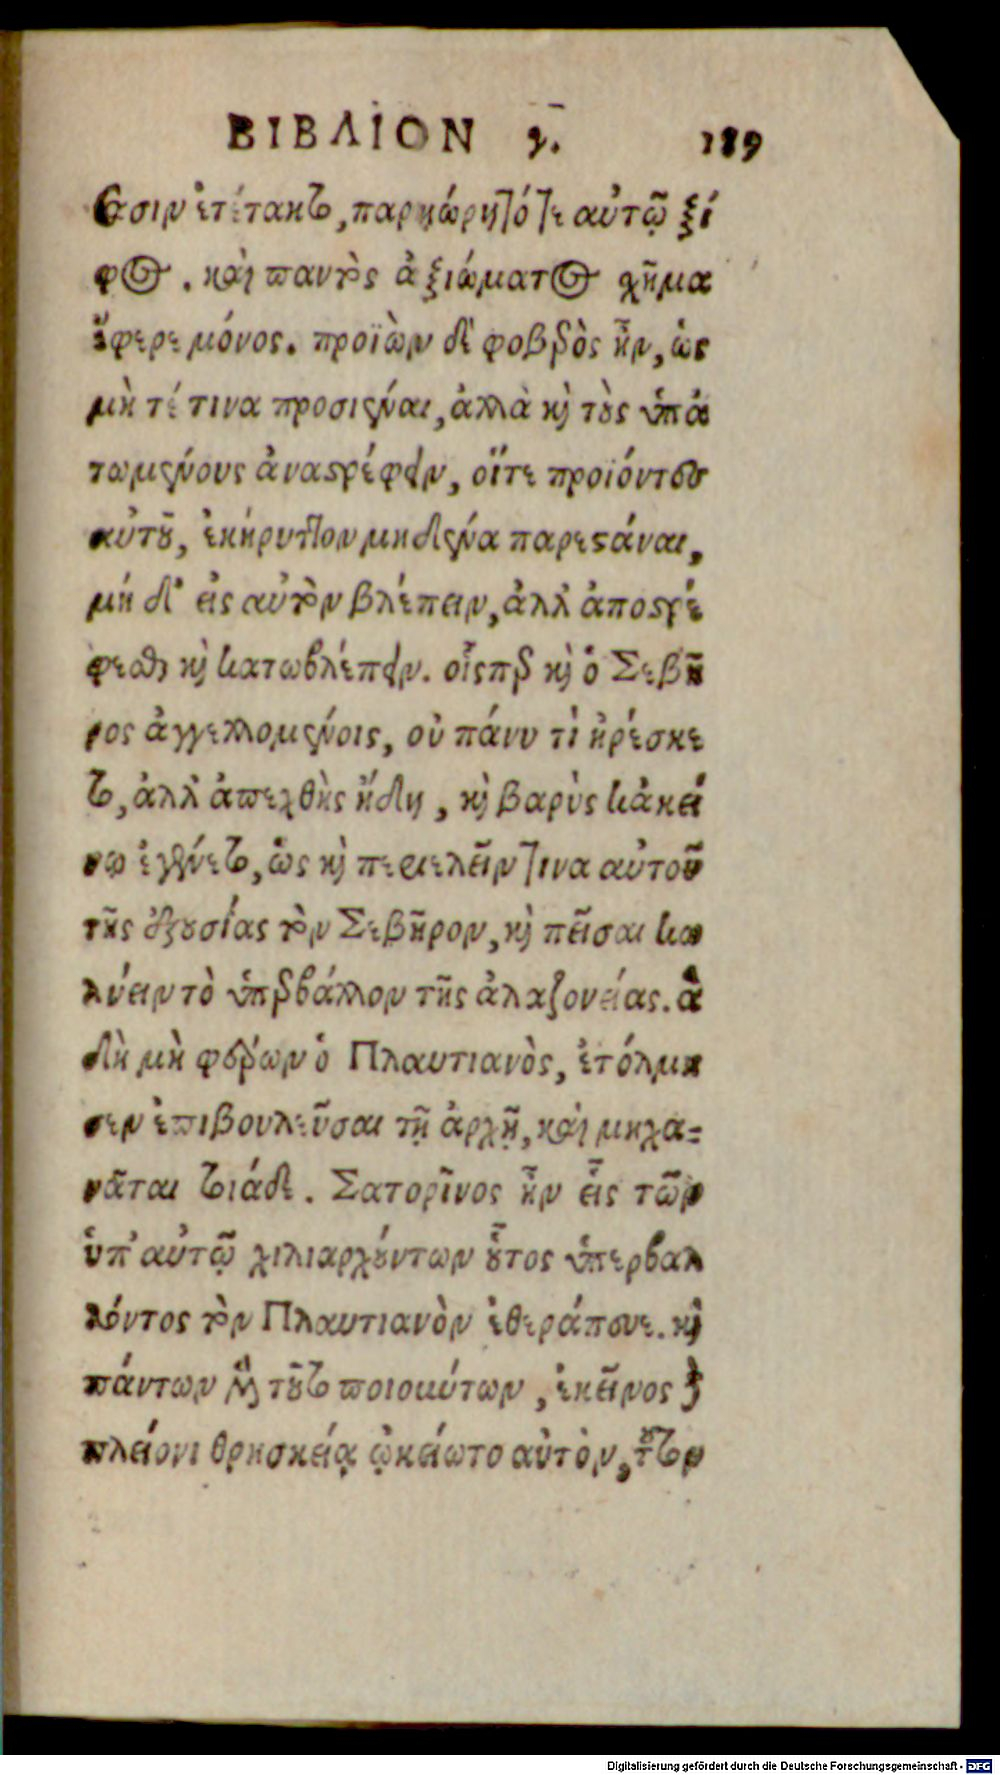 ΒΙΒΛΙΟΝ γ. 189
σασιν ἐτέτακτο, παρῃώρητό τε αὐτῷ ξί
φος. καὶ παντὸς ἀξιώματος σχῆμα
ἔφερε μόνος. προϊὼν δὲ φοβερὸς ἦν, ὡς
μὴ τέ τινα προσιέναι, ἀλλὰ καὶ τοὺς ὑπα
τωμένους ἀναστρέφειν, οἵτε προϊόντος
αὐτοῦ, ἐκήρυττον μηδένα παρεστάναι,
μή δ' εἰς αὐτὸν βλέπειν, ἀλλ' ἀποστρέ
φεσθαι καὶ κατωβλέπειν. οἷςπερ καὶ ὁ Σεβῆ
ρος ἀγγελλομένοις, οὐ πάνυ τὶ ἠρέσκε
το, ἀλλ' ἀπεχθὴς ἤδη, καὶ βαρὺς κἀκεί
νῳ ἐγένετο, ὡς καὶ περιελεῖν τινα αὐτοῦ
τῆς ἐξουσίας τὸν Σεβῆρον, καὶ πεῖσαι κω
λύειν τὸ ὑπερβάλλον τῆς ἀλαζονείας. ἃ
δὴ μὴ φέρων ὁ Πλαυτιανὸς, ἐτόλμη
σεν ἐπιβουλεῦσαι τῇ ἀρχῇ, καὶ μηχα-
νᾶται τοιάδε. Σατορῖνος ἦν εἷς τῶν
ὑπ' αὐτῷ χιλιαρχούντων οὗτος ὑπερβαλ
λόντος τὸν Πλαυτιανὸν ἐθεράπευε. καὶ
πάντων μὲν τοῦτο ποιούντων, ἐκεῖνος
πλείονι θρησκείᾳ ᾠκείωτο αὐτὸν, τοῦτον
Digitalisierung gefördert durch die Deutsche Forschungsgemeinschaft - DFG